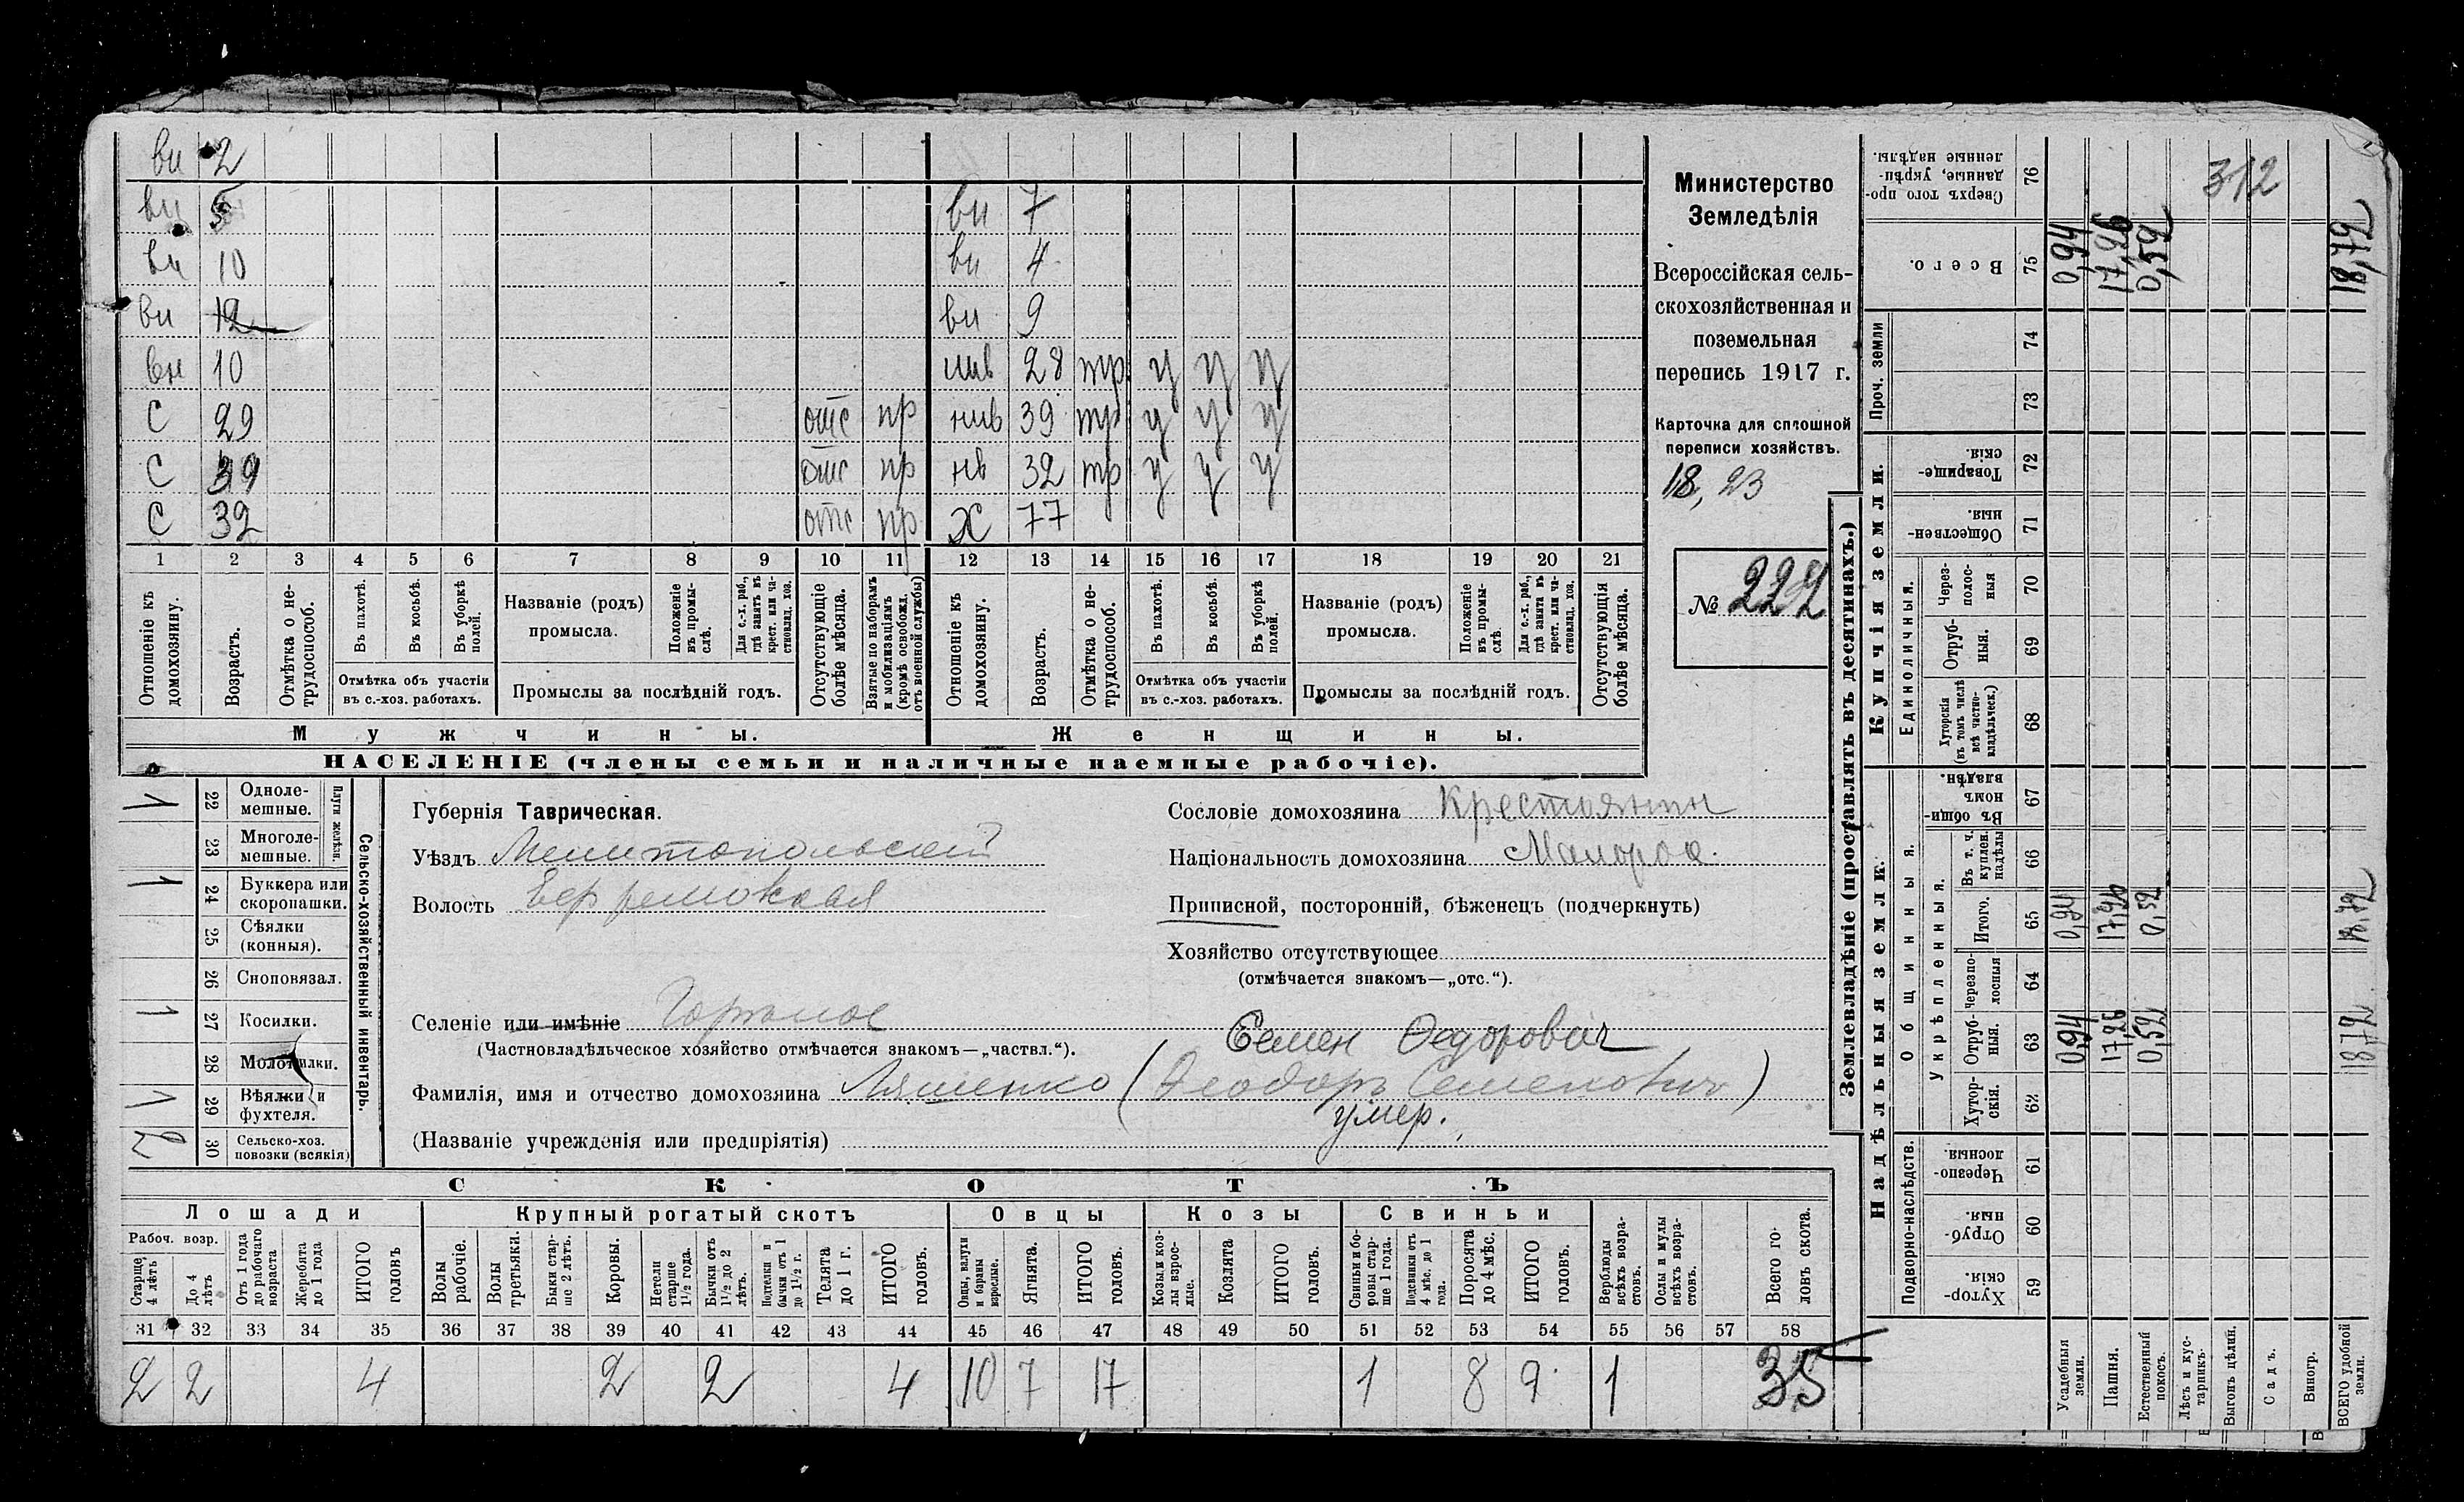 ви 2
ви 5 ви 7
ви 10 ви 4
ви 12 ви 9
вн 10 28 тр у у у
С 29 отс пр нив 39 тр у у у
С 39 отс пр нв 32 тр у у у
С 32 отс пр Ж 77
1 2 3 4 5 6 7 8 9 10 11 12 13 14 15 16 17 18 19 20 21
Отношеніе къ домохозяину.
Возрастъ.
Отмѣтка о не-трудоспособ.
Въ пахотѣ.
Въ косьбѣ.
Въ уборкѣ полей.
Отмѣтка объ участіи
въ с.-хоз. работахъ.
Названіе (родъ)
промысла.
Положеніе въ промы-слѣ.
Для с.-х. раб., гдѣ занятъ въ крест. или ча-стновлад. хоз.
Промыслы за послѣдній годъ.
Отсутствующіе болѣе мѣсяца.
Взятые по наборамъ и мобилизаціямъ (кромѣ освобожд. отъ военной службы)
Отношеніе къ домохозяину.
Возрастъ.
Отмѣтка о не-трудоспособ.
Въ пахотѣ.
Въ косьбѣ.
Въ уборкѣ полей.
Отмѣтка объ участіи
въ с.-хоз. работахъ.
Названіе (родъ)
промысла.
Положеніе въ промы-слѣ.
Для с.-х. раб., гдѣ занята въ крест. или ча-стновлад. хоз.
Промыслы за послѣдній годъ.
Отсутствующія болѣе мѣсяца.
Мужчины. Женщины.
НАСЕЛЕНІЕ (члены семьи и наличные наемные рабочіе).
Министерство
Земледѣлія
Всероссійская сель-
скохозяйственная и
поземельная
перепись 1917 г.
Карточка для сплошной
переписи хозяйствъ.
18,23
№ 222
1 22 Одноле-мешные.
23 Многоле-мешные.
Плуги желѣзн.
1 24 Буккера или скоропашки.
25 Сѣялки (конныя).
26 Сноповязал.
1 27 Косилки.
28 Молотилки.
1 29 Вѣялки и фухтеля.
2 30 Сельско-хоз. повозки (всякія)
Сельско-хозяйственный инвентарь.
Губернія Таврическая.
Уѣздъ Мелитопольскій
Волость Ефремовская
Селеніе или имѣніе
(Частновладѣльческое хозяйство отмѣчается знакомъ—„частвл.“).
Сословіе домохозяина Крестьянин
Національность домохозяина Малорос.
Приписной, посторонній, бѣженецъ (подчеркнуть)
Хозяйство отсутствующее
(отмѣчается знакомъ—„отс.“).
Семен Федорович
Фамилія, имя и отчество домохозяина Ляшенко (Феодоръ Семеновичъ)
умер.
(Названіе учрежденія или предпріятія)
СКОТЪ
Лошади Крупный рогатый скотъ Овцы Козы Свиньи
Рабоч. возр.
Старше 4 лѣтъ
До 4 лѣтъ
Отъ 1 года до рабочаго возраста
Жеребята до 1 года
ИТОГО головъ
Волы рабочіе.
Волы третьяки.
Быки стар-ше 2 лѣтъ.
Коровы.
Нетели старше 1½ года.
Бычки отъ 1½ до 2 лѣтъ.
Подтелки и бычки отъ 1 до 1½ г.
Телята до 1 г.
ИТОГО головъ.
Овцы, валухи и бараны взрослые.
Ягнята.
ИТОГО головъ.
Козы и коз-лы взрос-лые.
Козлята
ИТОГО головъ.
Свиньи и бо-ровы стар-ше 1 года.
Подсвинки отъ 4 мѣс. до 1 года.
Поросята до 4 мѣс.
ИТОГО головъ.
Верблюды всѣхъ возра-стовъ.
Ослы и мулы всѣхъ возра-стовъ.
Всего го-ловъ скота.
31 32 33 34 35 36 37 38 39 40 41 42 43 44 45 46 47 48 49 50 51 52 53 54 55 56 57 58
2 2 4 2 2 4 10 7 17 1 8 9 1 35
Землевладѣніе (проставлять въ десятинахъ.)
Надѣльныя земли. Купчія земли. Проч. земли
Подворно-наслѣдств. Общинныя. Единоличныя.
Укрѣпленныя.
Хутор-скія. 59
Отруб-ныя. 60
Черезпо-лосныя 61
Хутор-скія. 62
Отруб-ныя. 63
Черезпо-лосныя 64
Итого. 65
Въ т. ч. куплен. надѣлы 66
Въ общин-номъ владѣн. 67
Хуторскія (въ томъ числѣ всѣ частно-владѣльческ.) 68
Отруб-ныя. 69
Через-полос-ныя 70
Обществен-ныя. 71
Товарище-скія. 72
73
74
Всего. 75
Сверхъ того про-данные, укрѣп-ленные надѣлы. 76
Усадебныя земли. 0,94 0,94 0,94
Пашня. 17,26 17,26 17,26
Естественный покосъ. 0,52 0,52 0,52
Лѣсъ и кус-тарникъ.
Выгонъ цѣлин.
Садъ.
Виногр.
ВСЕГО удобной земли. 18,72 18,72 18,72
312